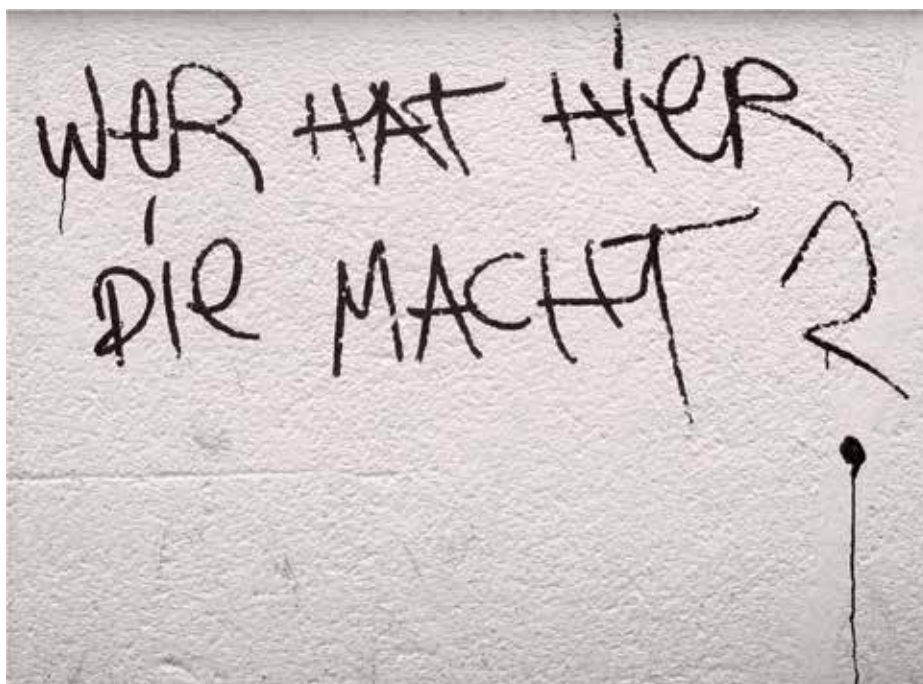 WeR HAT HieR
Die MACHT ?